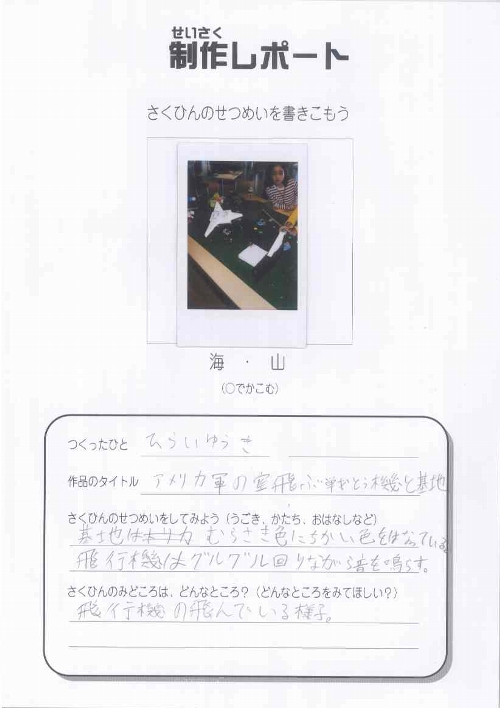 せいさく
制作レポート
さくひんのせつめいを書きこもう
海 ・ 山
(○でかこむ)
つくったひと ひらいゆうき
作品のタイトル アメリカ軍の空飛ぶ戦とう機と基地
さくひんのせつめいをしてみよう(うごき、かたち、おはなしなど)
基地は むらさき色にちかい色をはなっている
飛行機はグルグル回りながら音を鳴らす。
さくひんのみどころは、どんなところ?(どんなところをみてほしい?)
飛行機の飛んでいる様子。